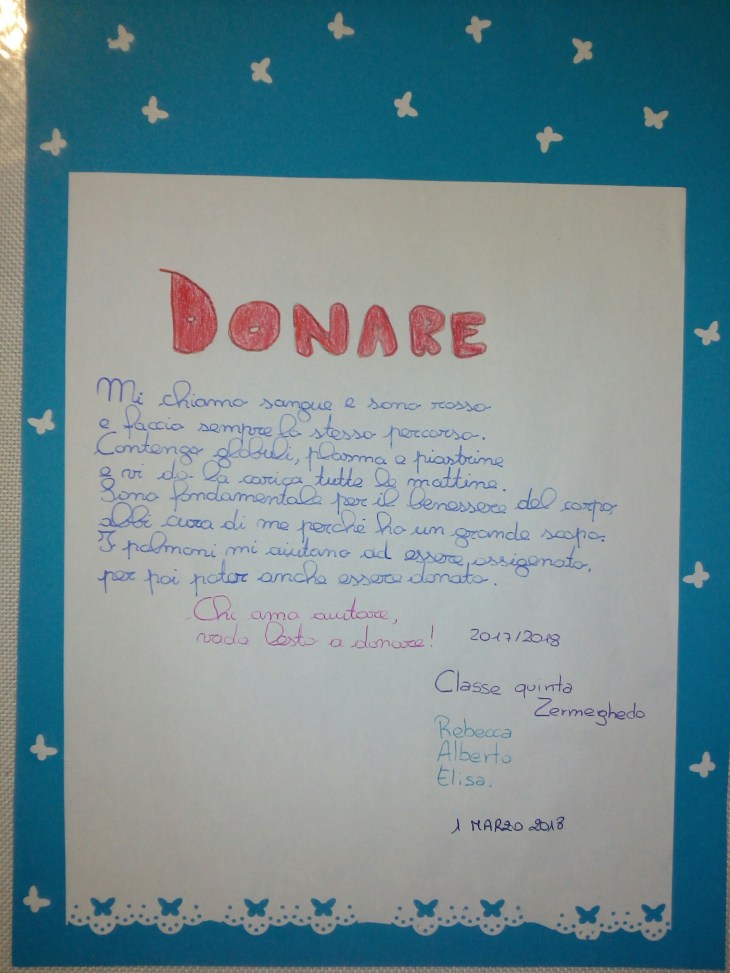 DONARE
Mi chiamo sangue e sono rosso
e faccio sempre lo stesso percorso.
Contengo globuli, plasma e piastrine
e vi do la carica tutte le mattine.
Sono fondamentale per il benessere del corpo,
abbi cura di me perché ho un grande scopo.
I polmoni mi aiutano ad essere ossigenato,
per poi poter anche essere donato.
Chi ama aiutare,
vada lesto a donare!
2017/2018
Classe quinta
Zermeghedo
Rebecca
Alberto
Elisa.
1 MARZO 2018